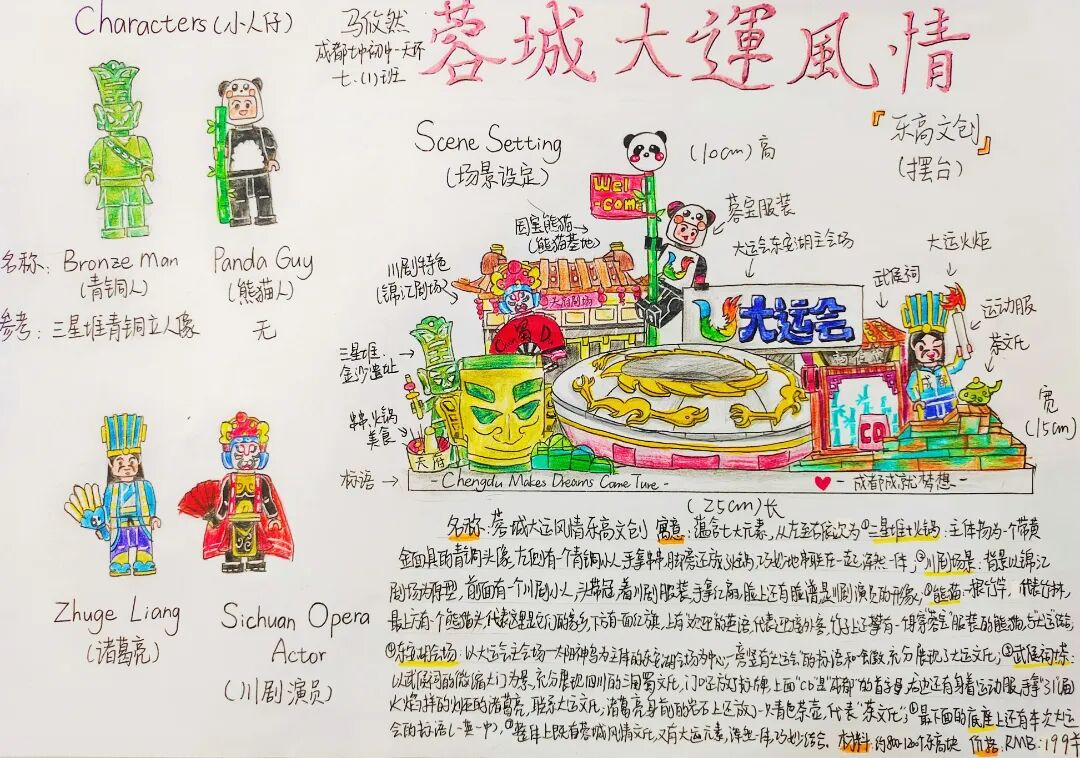 Characters (小人仔)
马攸然
成都七中初中一天环
七.(1)班
蓉城大運風情
『乐高文创』
(摆台)
Scene Setting
(场景设定)
(10cm)高
Wel-
come
蓉宝服装
国宝熊猫→
(熊猫基地)
大运会东安湖主会场
大运火炬
川剧特色
(锦江剧场)
武侯祠
运动服
茶文化
天府剧场
大运会
三星堆
金沙遗址
串串火锅
美食
天府
CD
宽
(15cm)
标语→
- Chengdu Makes Dreams Come Ture -
- 成都成就梦想 -
(25cm)长
名称: Bronze Man
(青铜人)
Panda Guy
(熊猫人)
参考: 三星堆青铜立人像
无
Zhuge Liang
(诸葛亮)
Sichuan Opera
Actor
(川剧演员)
名称:蓉城大运风情乐高文创 寓意:蕴含七大元素,从左至右依次为①三星堆+火锅:主体物为一个带黄
金面具的青铜头像,左边有一个青铜小人手拿串串,脚旁还放了火锅,巧妙地串联在一起,浑然一体;②川剧场景:背景以锦江
剧场为原型,前面有一个川剧小人,头带冠,着川剧服装,手拿红扇,脸上还有脸谱是川剧演员的形象;③熊猫:一根竹竿,代替竹林,
最上方有一个熊猫头代表这里是它们的家乡,下方有一面红旗,上有欢迎的英语,代表
④东安湖会场:以大运会主会场一太阳神鸟为主体的东安湖会场为中心,旁竖有大运会的标语和会徽,充分展现了大运文化;⑤武侯祠+茶:
以武侯祠的微缩大门为景,充分展现四川的三国蜀文化,门口还放了标牌,上面"CD"是"成都"的首字母,右边还有身着运动服,手拿
火焰样的火炬的诸葛亮,联系大运文化;诸葛亮身前的岩石上还放了一只青色茶壶,代表"茶文化";⑥最下面的底座上还有本次大运
会的标语(一英一中),⑦整体上既有蓉城风情文化,又有大运元素,浑然一体,巧妙结合。材料:约800-1200个乐高块 价格:RMB:199